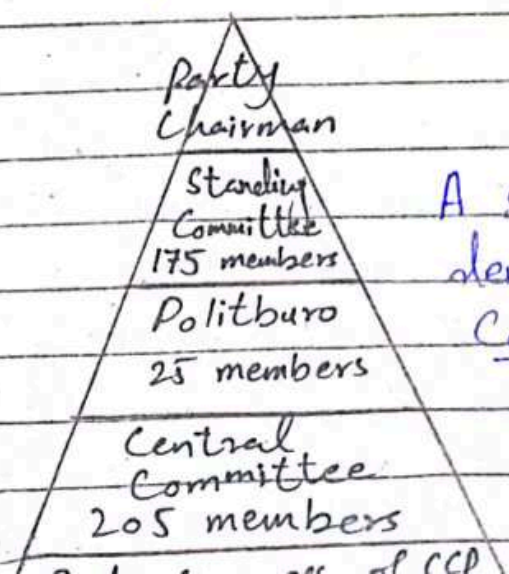 Party
Chairman
Standing
Committee
175 members
A
Politburo
25 members
Central
Committee
205 members
of CCP